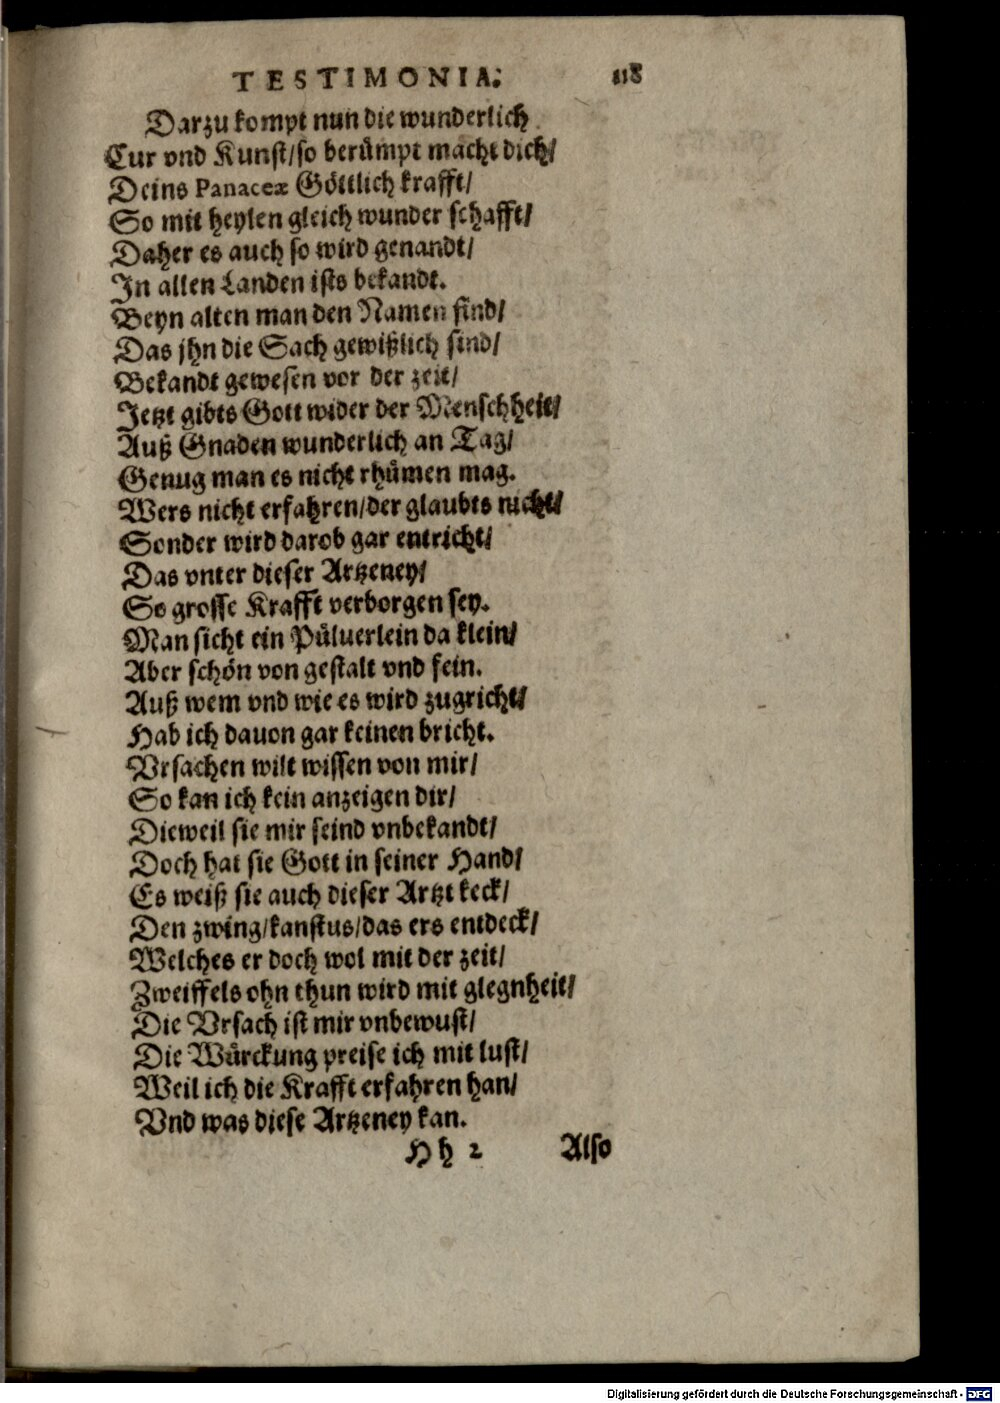 TESTIMONIA. 118
Darzu kompt nun die wunderlich
Cur vnd Kunst/so berümpt macht dich/
Deins Panaceæ Göttlich krafft/
So mit heylen gleich wunder schafft/
Daher es auch so wird genandt/
In allen Landen ists bekandt.
Beyn alten man den Namen find/
Das jhn die Sach gewißlich sind/
Bekandt gewesen vor der zeit/
Jetzt gibts Gott wider der Menschheit/
Auß Gnaden wunderlich an Tag/
Genug man es nicht rhümen mag.
Wers nicht erfahren/der glaubts nicht/
Sonder wird darob gar entricht/
Das vnter dieser Artzeney/
So grosse Krafft verborgen sey.
Man sicht ein Püluerlein da klein/
Aber schön von gestalt vnd fein.
Auß wem vnd wie es wird zugricht/
Hab ich dauon gar keinen bricht.
Vrsachen wilt wissen von mir/
So kan ich kein anzeigen dir/
Dieweil sie mir seind vnbekandt/
Doch hat sie Gott in seiner Hand/
Es weiß sie auch dieser Artzt keck/
Den zwing/kanstus/das ers entdeck/
Welches er doch wol mit der zeit/
Zweiffels ohn thun wird mit glegnheit/
Die Vrsach ist mir vnbewust/
Die Würckung preise ich mit lust/
Weil ich die Krafft erfahren han/
Vnd was diese Artzeney kan.
Hh 2 Also
Digitalisierung gefördert durch die Deutsche Forschungsgemeinschaft - DFG